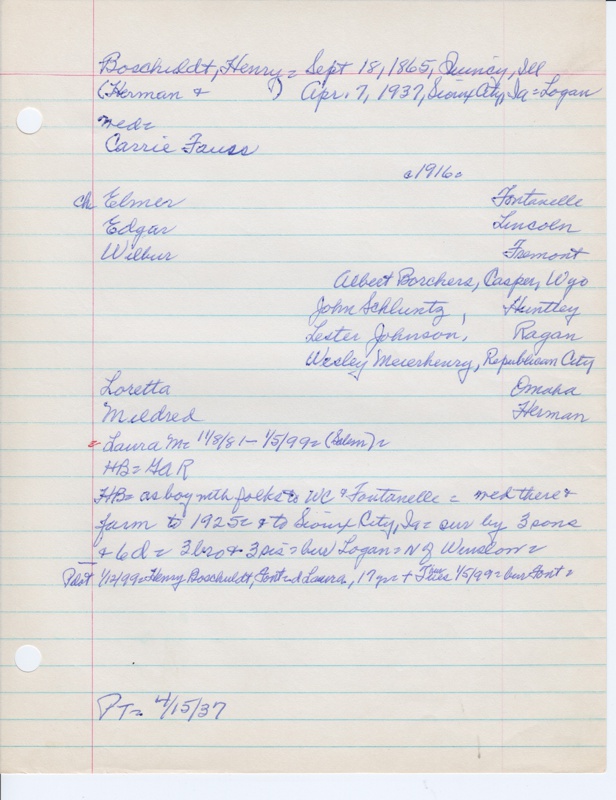 Boschuldt, Henry = Sept 18, 1865, Quincy, Ill
(Herman &        ) Apr. 7, 1937, Sioux City, Ia = Logan
med=
Carrie Fauss
c1916=
ch Elmer Fontanelle
Edgar Lincoln
Wilbur Fremont
Albert Borchers, Casper, Wyo
John Schluntz, Huntley
Lester Johnson, Ragan
Wesley Meierhenry, Republican City
Loretta Omaha
Mildred Herman
= Laura M= 11/8/81 - 1/5/99= (Salem)=
HB = GAR
HB= as boy with folks to WC & Fontanelle = med there &
farm to 1925= & to Sioux City, Ia= sur by 3 sons
& 6 d = 3 bro & 3 sis = bur Logan = N of Winslow =
Pilot 1/12/99= Henry Boschuldt, Font= d Laura, 17 yr= + 1/5/99= bur Font=
PT= 4/15/37